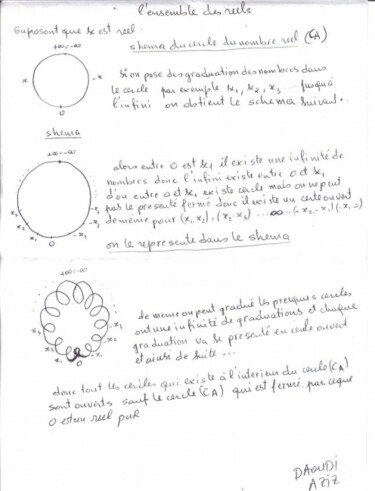 l'ensemble des reels
Suposont que x est reel.
shema du cercle du nombre reel (CA)
+∞=-∞
x
-x
0
si on pose des graduation des nombres dans
le cercle par exemple x₁, x₂, x₃ .... jusqu'à
l'infini on obtient le schema suivant..
shema
+∞=-∞
x₃
x₂
x₁
0
-x₁
-x₂
-x₃
alors entre 0 est x₁ il existe une infinité de
nombres donc l'infini existe entre 0 et x₁
d'ou entre 0 et x₁ existe cercle mais on ne peut
pas le presenté fermé donc il existe un cercle ouvert
de meme pour (x₁,x₂), (x₂,x₃) .... ∞ (-x₂,-x₁) (-x₁,0)
on le represente dans le shema
+∞=-∞
x₃
x₂
x₁
0
-x₁
-x₂
-x₃
de meme on peut gradué les cercles
ont une infinité de graduations et chaque
graduation va se presenté en cercle ouvert
et ainsi de suite ...
donc tout les cercles qui existe à l'interieur du cercle (CA)
sont ouverts sauf le cercle (CA) qui est fermé, par ceque
0 est un reel pur
DAOUDI
AZIZ